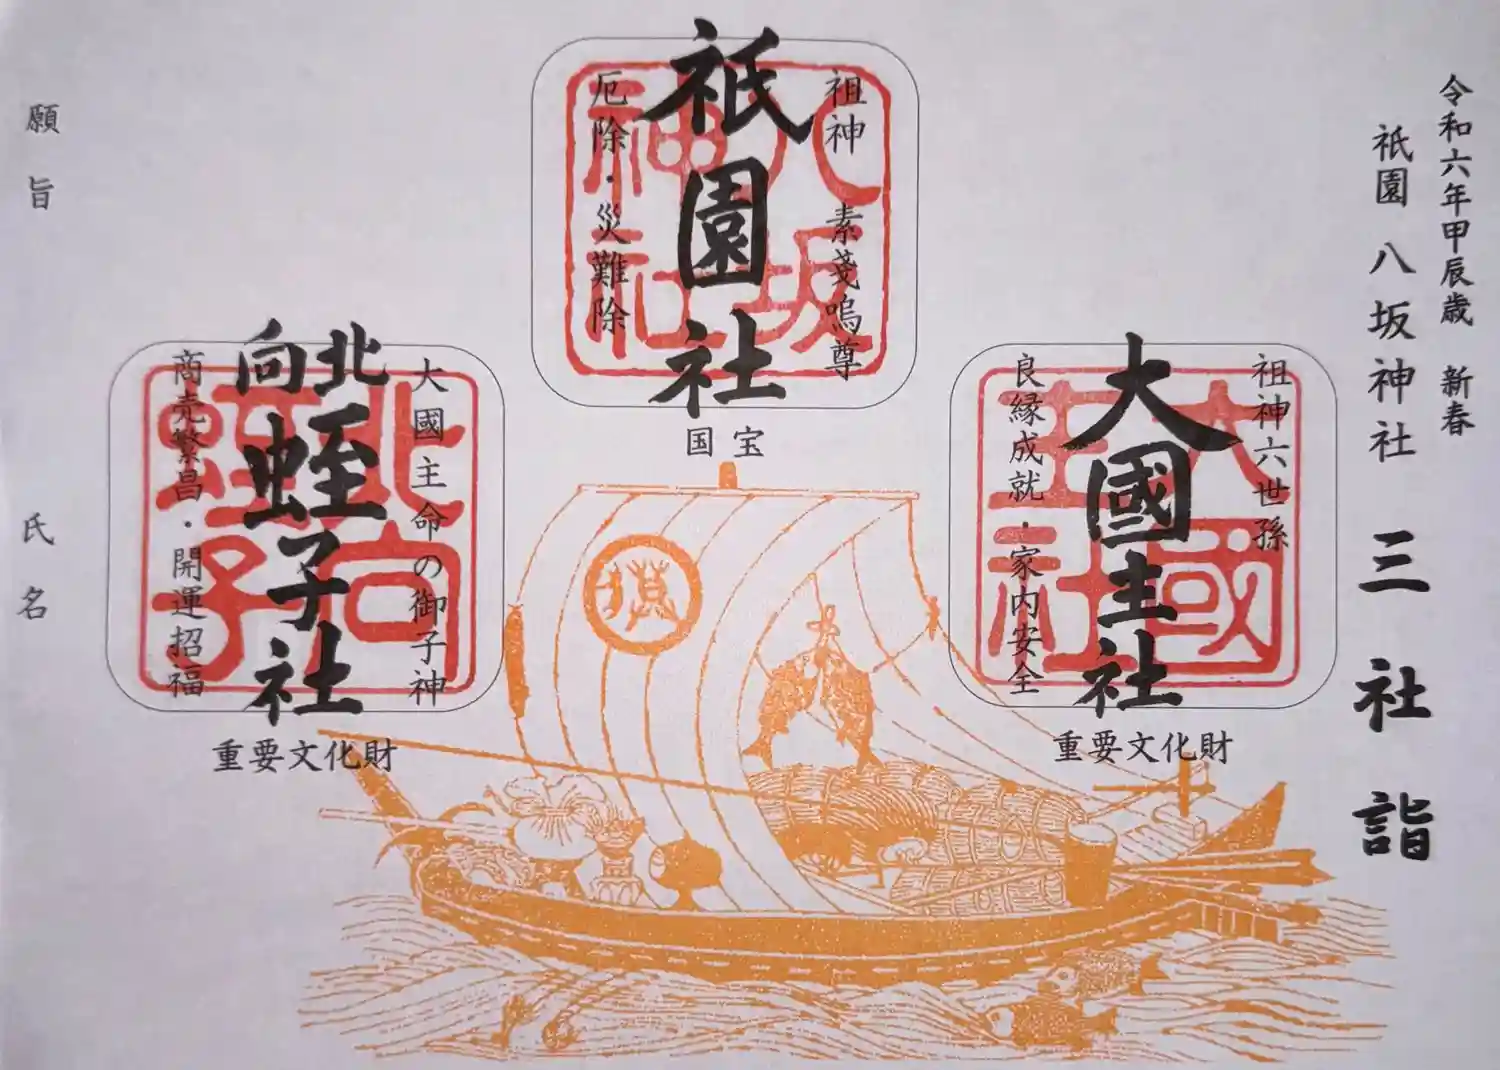 令和六年甲辰歳　新春
祇園 八坂神社 三社詣
祖神六世孫
大國主社
良縁成就・家内安全
大國主社
重要文化財
祖神 素戔嗚尊
祇園社
厄除・災難除
八坂神社
国宝
大國主命の御子神
北向蛭子社
商売繁昌・開運招福
北向蛭子
重要文化財
願旨
氏名